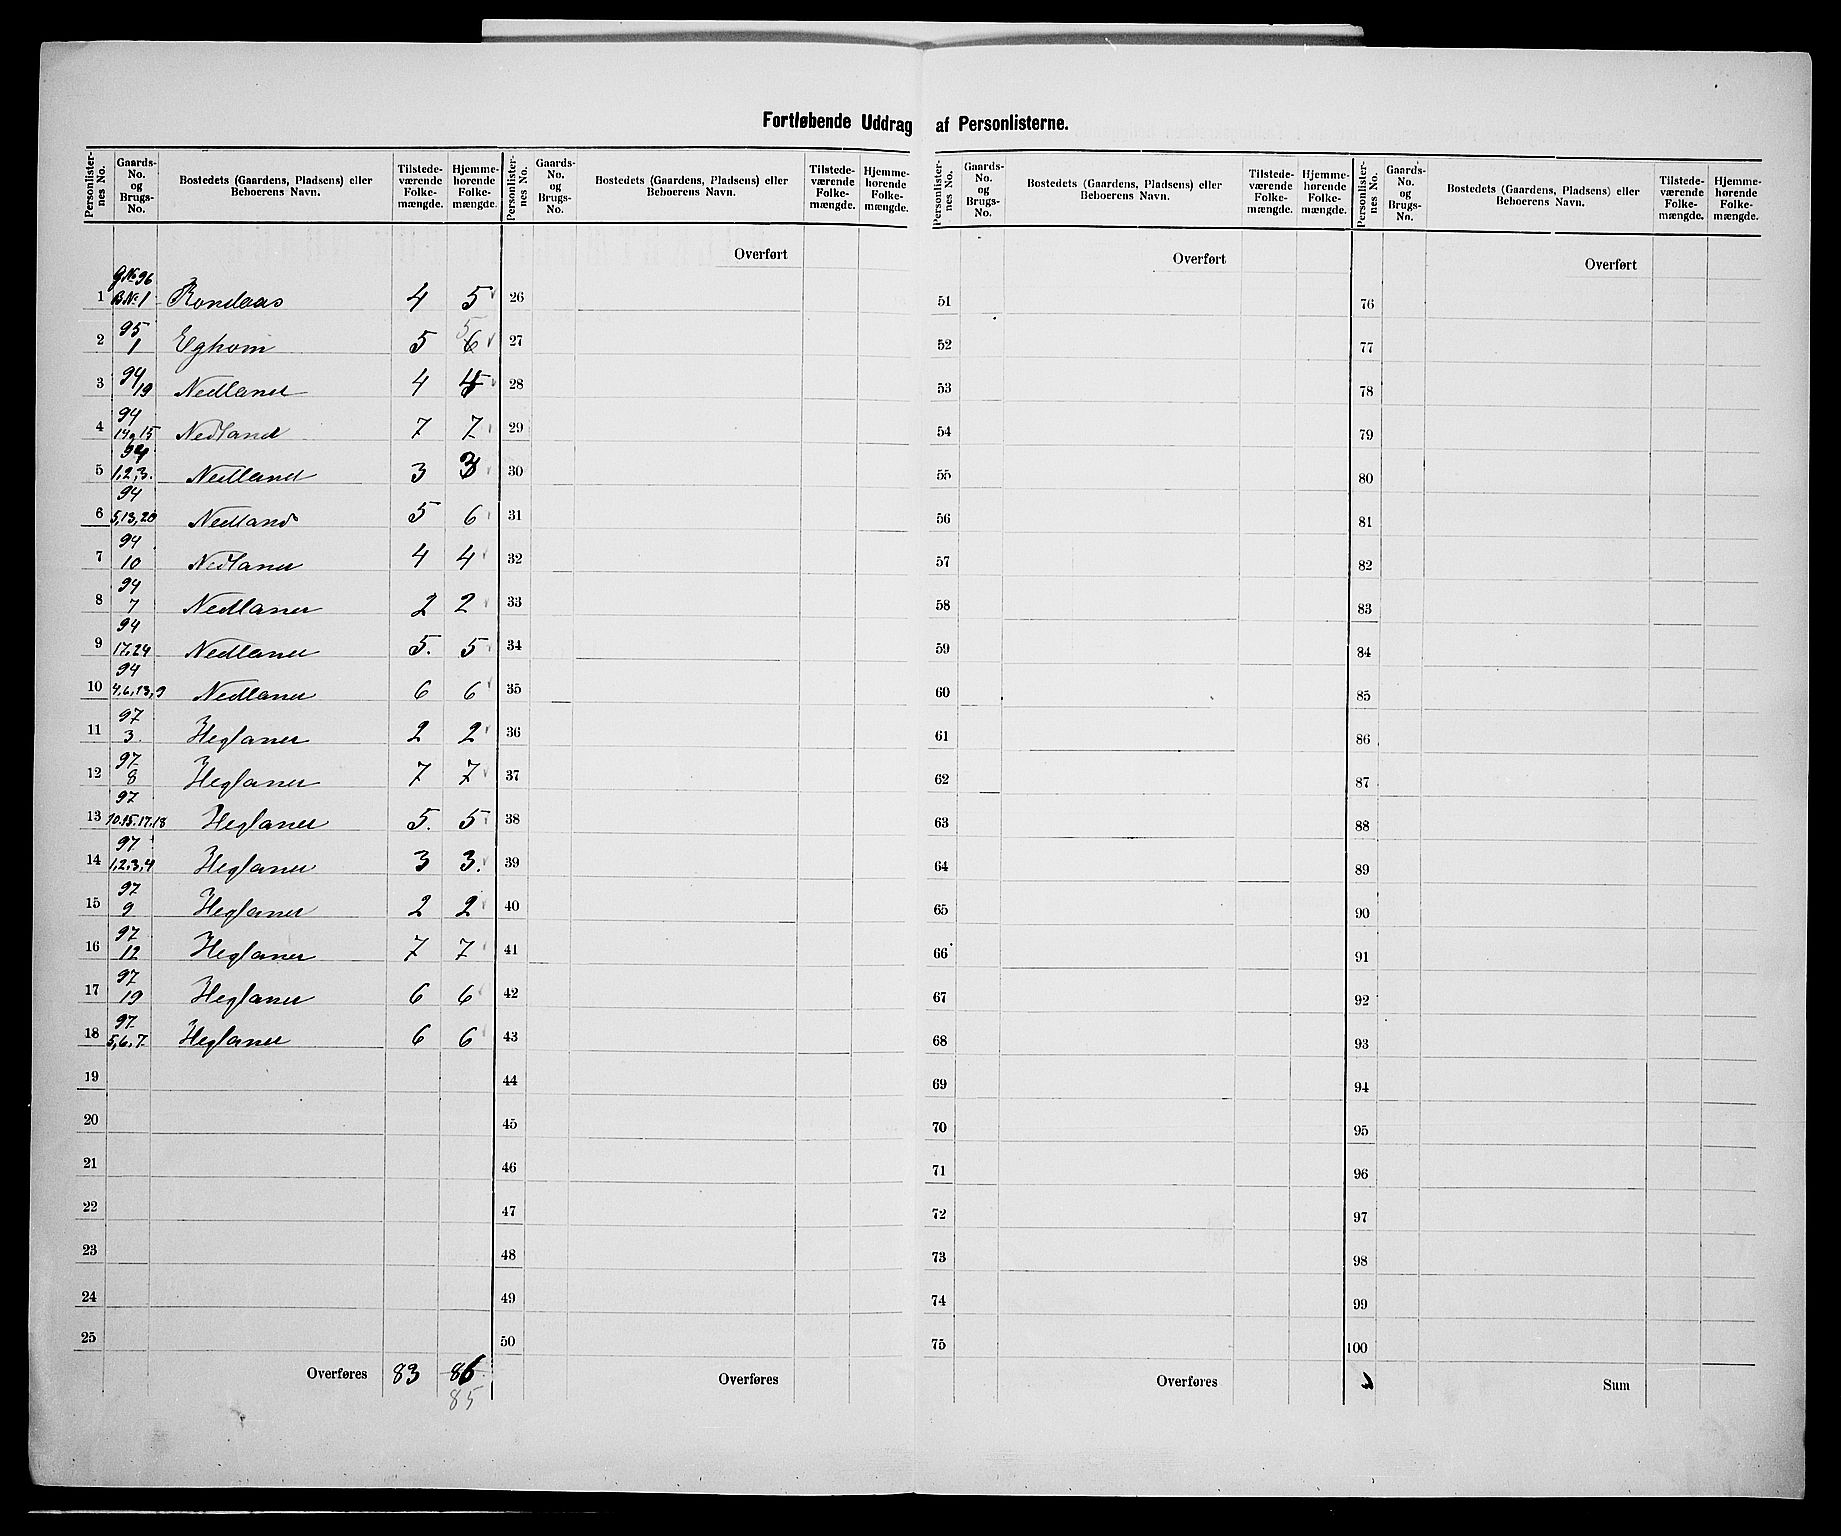 Fortløbende Uddrag af Personlisterne.
Personlister-nes No. | Gaards-No. og Brugs-No. | Bostedets (Gaardens, Pladsens) eller Beboerens Navn. | Tilstede-værende Folke-mængde. | Hjemme-hørende Folke-mængde. | Personlister-nes No. | Gaards-No. og Brugs-No. | Bostedets (Gaardens, Pladsens) eller Beboerens Navn. | Tilstede-værende Folke-mængde. | Hjemme-hørende Folke-mængde. | Personlister-nes No. | Gaards-No. og Brugs-No. | Bostedets (Gaardens, Pladsens) eller Beboerens Navn. | Tilstede-værende Folke-mængde. | Hjemme-hørende Folke-mængde. | Personlister-nes No. | Gaards-No. og Brugs-No. | Bostedets (Gaardens, Pladsens) eller Beboerens Navn. | Tilstede-værende Folke-mængde. | Hjemme-hørende Folke-mængde.
Overført Overført Overført
1 G.No 96 B.No 1 4 5 26 51 76
2 95 1 Eghom 5 6 5 27 52 77
3 94 19 Nedland 4 4 28 53 78
4 94 14 og 15 Nedland 7 7 29 54 79
5 94 1,2,3. Nedland 3 3 30 55 80
6 94 5,13,20 Nedland 5 6 31 56 81
7 94 10 Nedland 4 4 32 57 82
8 94 7 Nedland 2 2 33 58 83
9 94 17,24 Nedland 5. 5 34 59 84
10 94 4,6,13,9 Nedland 6 6 35 60 85
11 97 3. Hegland 2 2 36 61 86
12 97 8 Hegland 7 7 37 62 87
13 97 10.15.17.18 Hegland 5. 5 38 63 88
14 97 1,2,3,4 Hegland 3 3. 39 64 89
15 97 9 Hegland 2 2 40 65 90
16 97 12 Hegland 7 7 41 66 91
17 97 19 Hegland 6 6 42 67 92
18 97 5,6,7 Hegland 6 6 43 68 93
19 44 69 94
20 45 70 95
21 46 71 96
22 47 72 97
23 48 73 98
24 49 74 99
25 50 75 100
Overføres 83 86 Overføres Overføres Sum
85